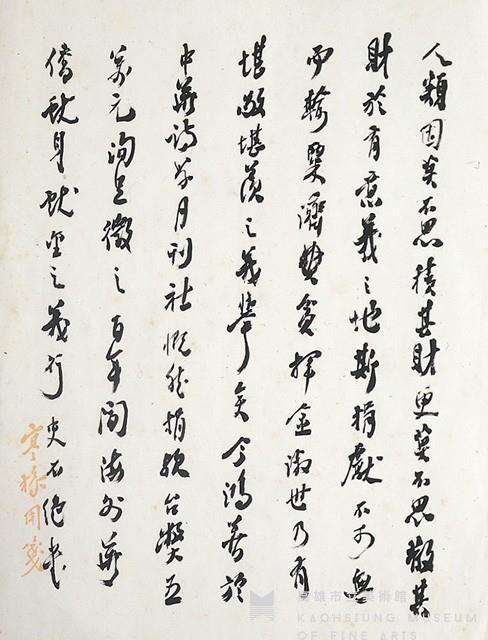 人類固莫不思積其財更莫不思散其
財於有意義之地斯捐獻不可無
而輸粟濟貧揮金淑世乃有
堪敬堪羨之義舉矣今鴻善於
中華詩學月刊社慨然捐款台幣五
萬元洵足徵之百年間海外華
僑之義行史不絕書
寒操用箋
高雄市立美術館
KAOHSIUNG MUSEUM
OF FINE ARTS